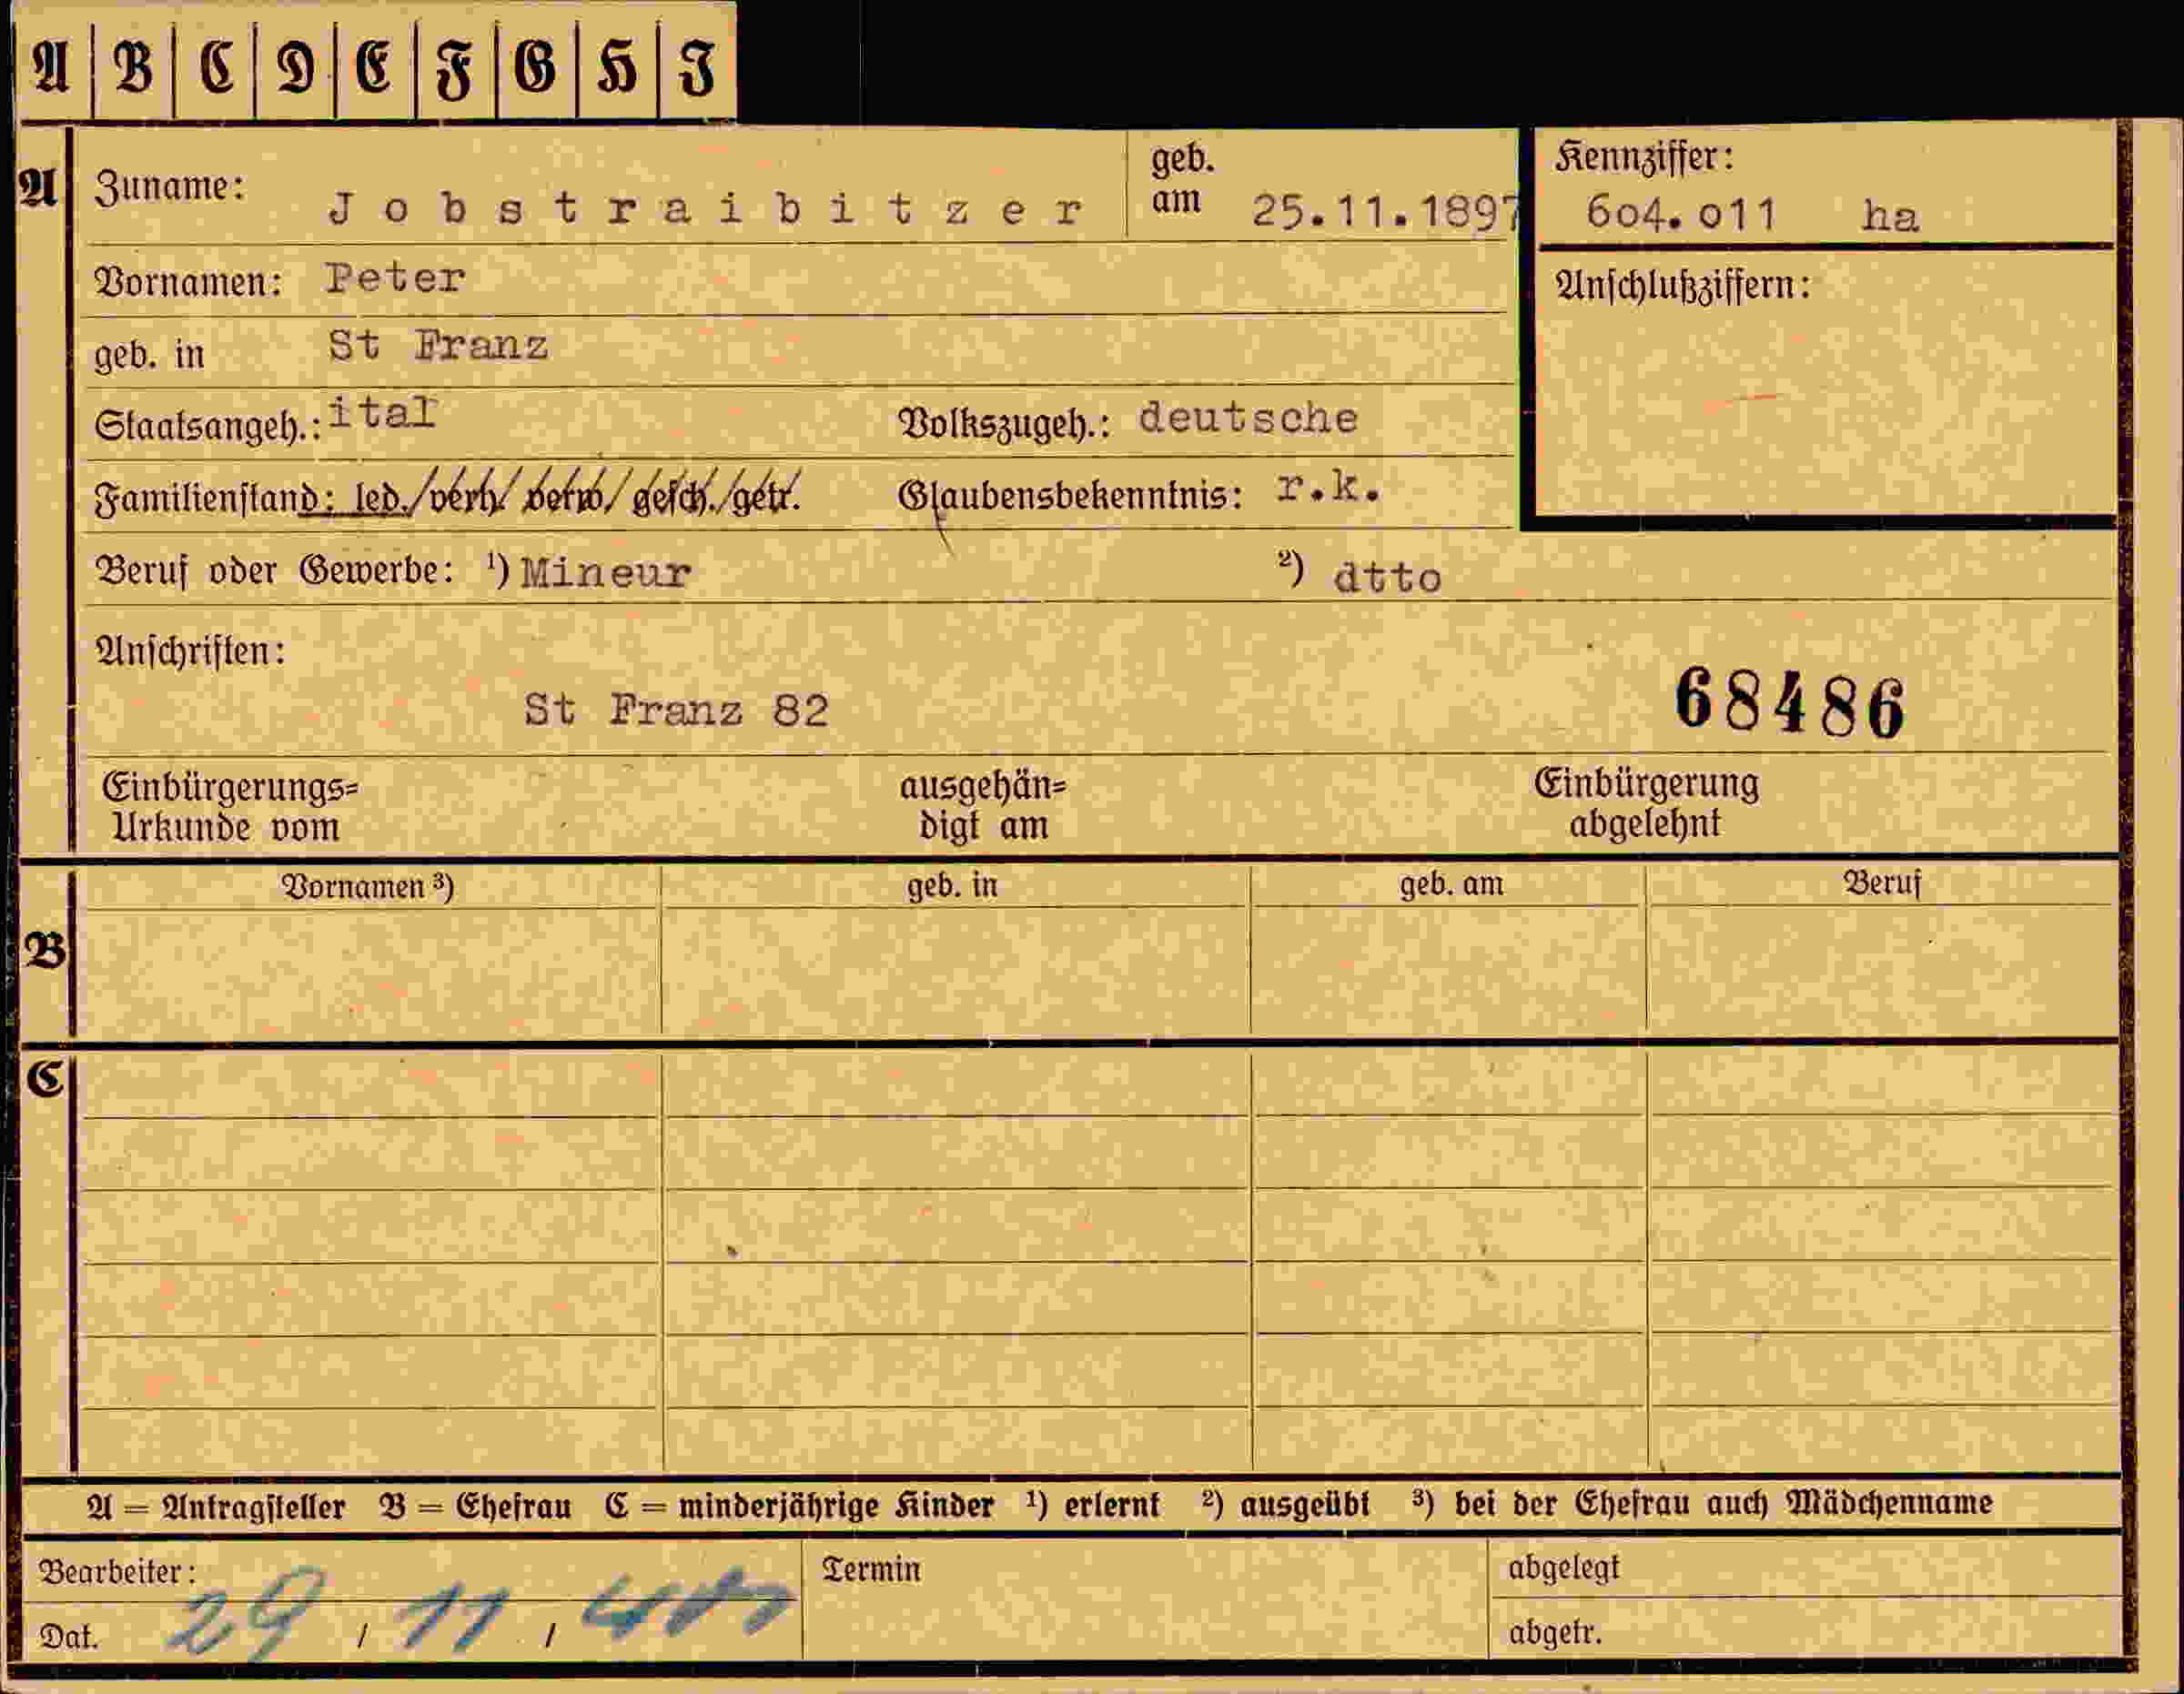 A B C D E F G H I
A Zuname: Jobstraibitzer geb. am 25.11.1897 Kennziffer: 604.011 ha
Vornamen: Peter Anschlußziffern:
geb. in St Franz
Staatsangeh.: ital Volkszugeh.: deutsche
Familienstand: led./verh./verw./gesch./getr. Glaubensbekenntnis: r.k.
Beruf oder Gewerbe: ¹) Mineur ²) dtto
Anschriften:
St Franz 82 68486
Einbürgerungs=
Urkunde vom
ausgehän=
digt am
Einbürgerung
abgelehnt
Vornamen ³) geb. in geb. am Beruf
B
C
A = Antragsteller B = Ehefrau C = minderjährige Kinder ¹) erlernt ²) ausgeübt ³) bei der Ehefrau auch Mädchenname
Bearbeiter: Termin abgelegt
Dat. 29 / 11 / abgetr.